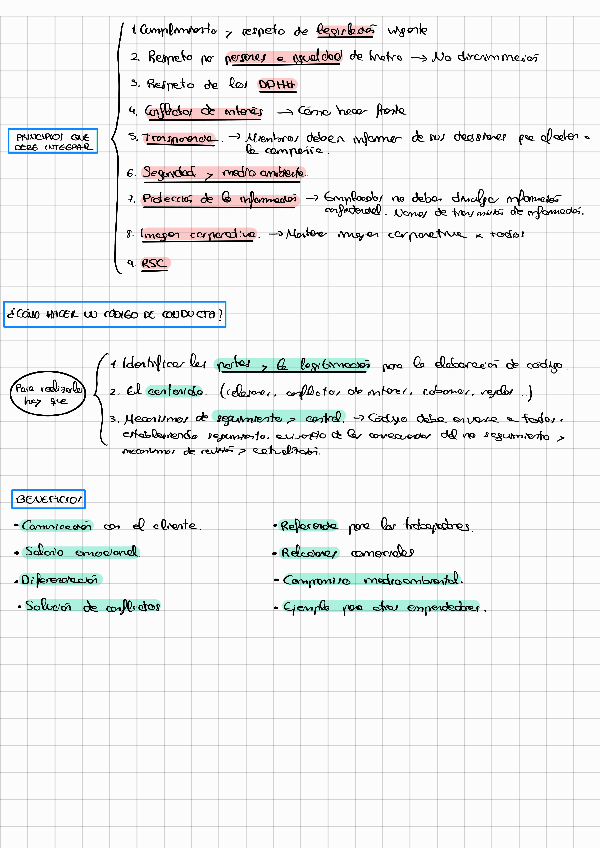 PRINCIPIOS QUE
DEBE INTEGRAR
1. Cumplimiento y respeto de legislación vigente
2. Respeto por personas e igualdad de trato → No discriminación
3. Respeto de los DDHH
4. Conflictos de interés → Cómo hacer frente
5. Transparencia. → Miembros deben informar de sus decisiones que afecten a
la compañía.
6. Seguridad y medio ambiente.
7. Protección de la información → Empleados no deben divulgar información
confidencial. Normas de transmisión de información.
8. Imagen corporativa. → Mostrar imagen corporativa a todos
9. RSC
¿CÓMO HACER UN CÓDIGO DE CONDUCTA?
Para realizarlo
hay que
1. Identificar las partes y la legitimación para la elaboración de código
2. El contenido. (relaciones, conflictos de interés, regalos...)
3. Mecanismos de seguimiento y control. → Código debe enviarse a todos,
estableciendo seguimiento, de las consecuencias del no seguimiento y
mecanismos de revisión y actualización.
BENEFICIOS
- Comunicación con el cliente.
• Salario emocional
• Diferenciación
• Solución de conflictos
- Referencia para los trabajadores.
• Relaciones comerciales
- Compromiso medioambiental.
- Ejemplo para otros emprendedores.